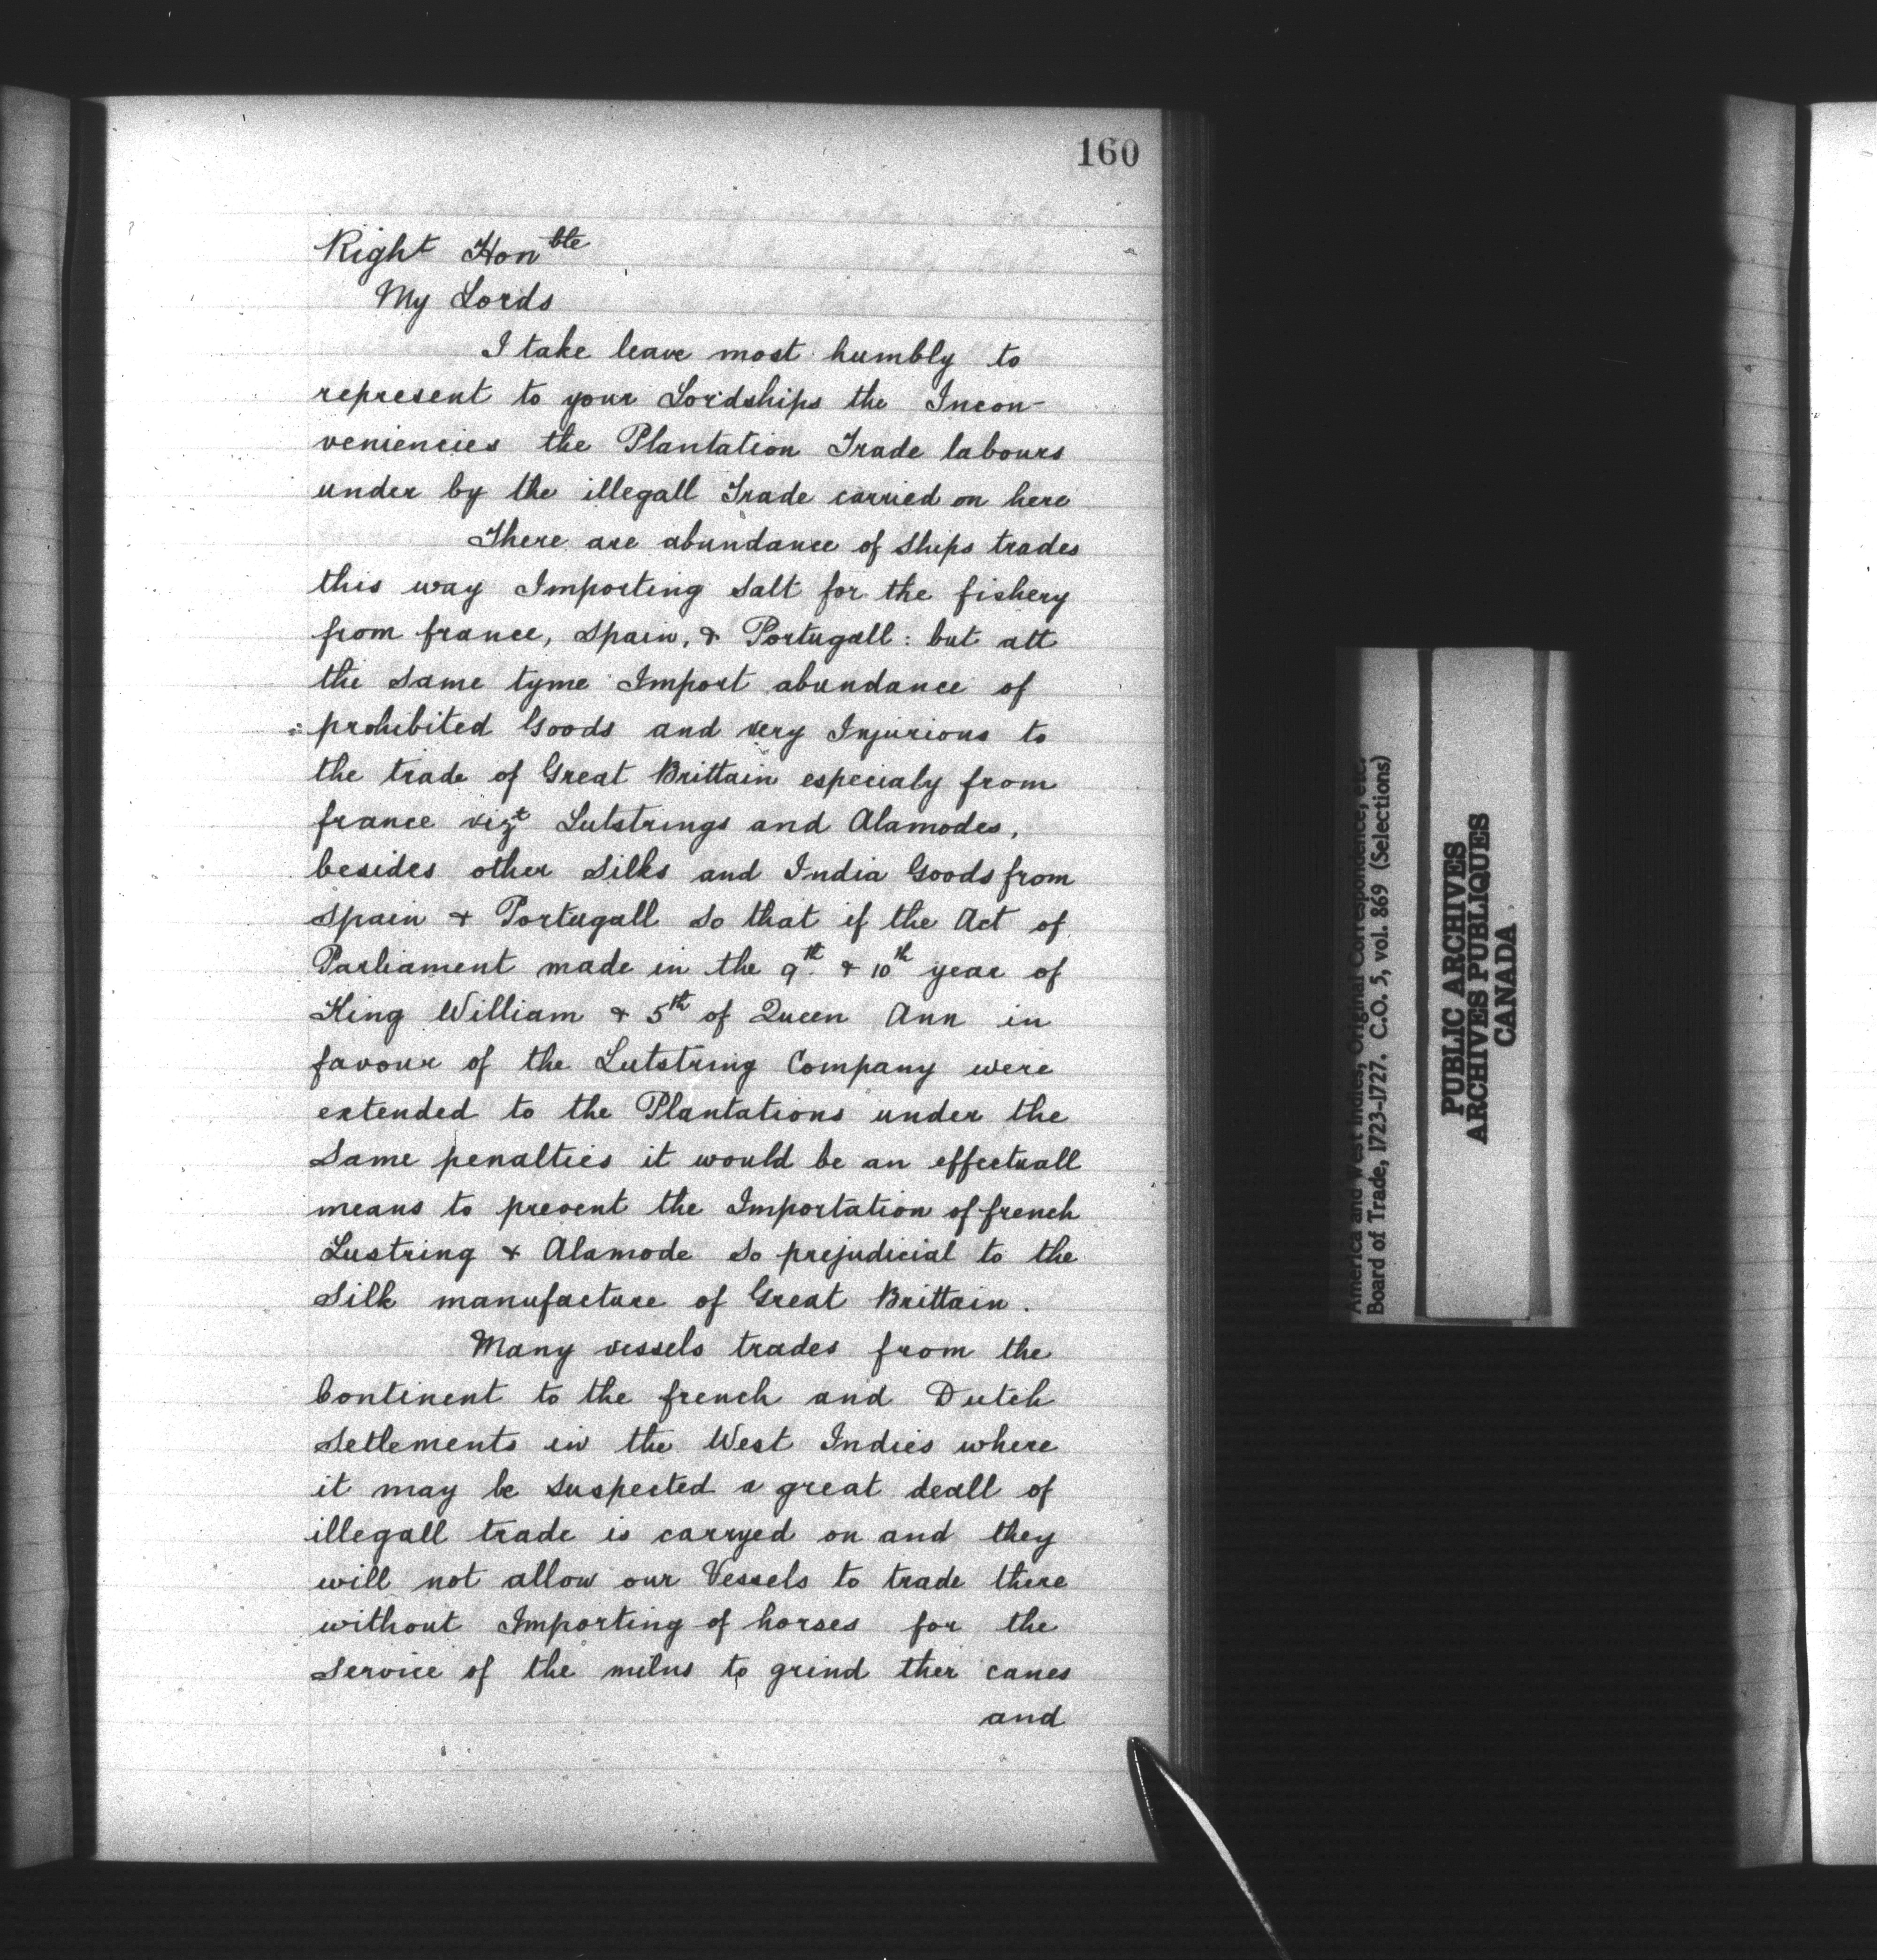 160
Right Honble
My Lords
I take leave most humbly to
represent to your Lordships the Incon-
veniencies the Plantation Trade labours
under by the illegall Trade carried on here
There are abundance of Ships trades
this way Importing Salt for the fishery
from france, Spain, & Portugall: but att
the Same tyme Import abundance of
prohibited Goods and very Injurious to
the trade of Great Brittain especialy from
france vizt Lutstrings and Alamodes,
besides other Silks and India Goods from
Spain & Portugall So that if the Act of
Parliament made in the 9th. & 10th year of
King William & 5th of Queen Ann in
favour of the Lutstring Company were
extended to the Plantations under the
Same penalties it would be an effectuall
means to prevent the Importation of french
Lustring & Alamode So prejudicial to the
Silk manufacture of Great Brittain.
Many vessels trades from the
Continent to the french and Dutch
Setlements in the West Indies where
it may be Suspected a great deall of
illegall trade is carryed on and they
will not allow our Vessels to trade there
without Importing of horses for the
Service of the milns to grind ther canes
and
America and West Indies, Original Correspondence, etc.
Board of Trade, 1723-1727. C.O. 5, vol. 869 (Selections)
PUBLIC ARCHIVES
ARCHIVES PUBLIQUES
CANADA